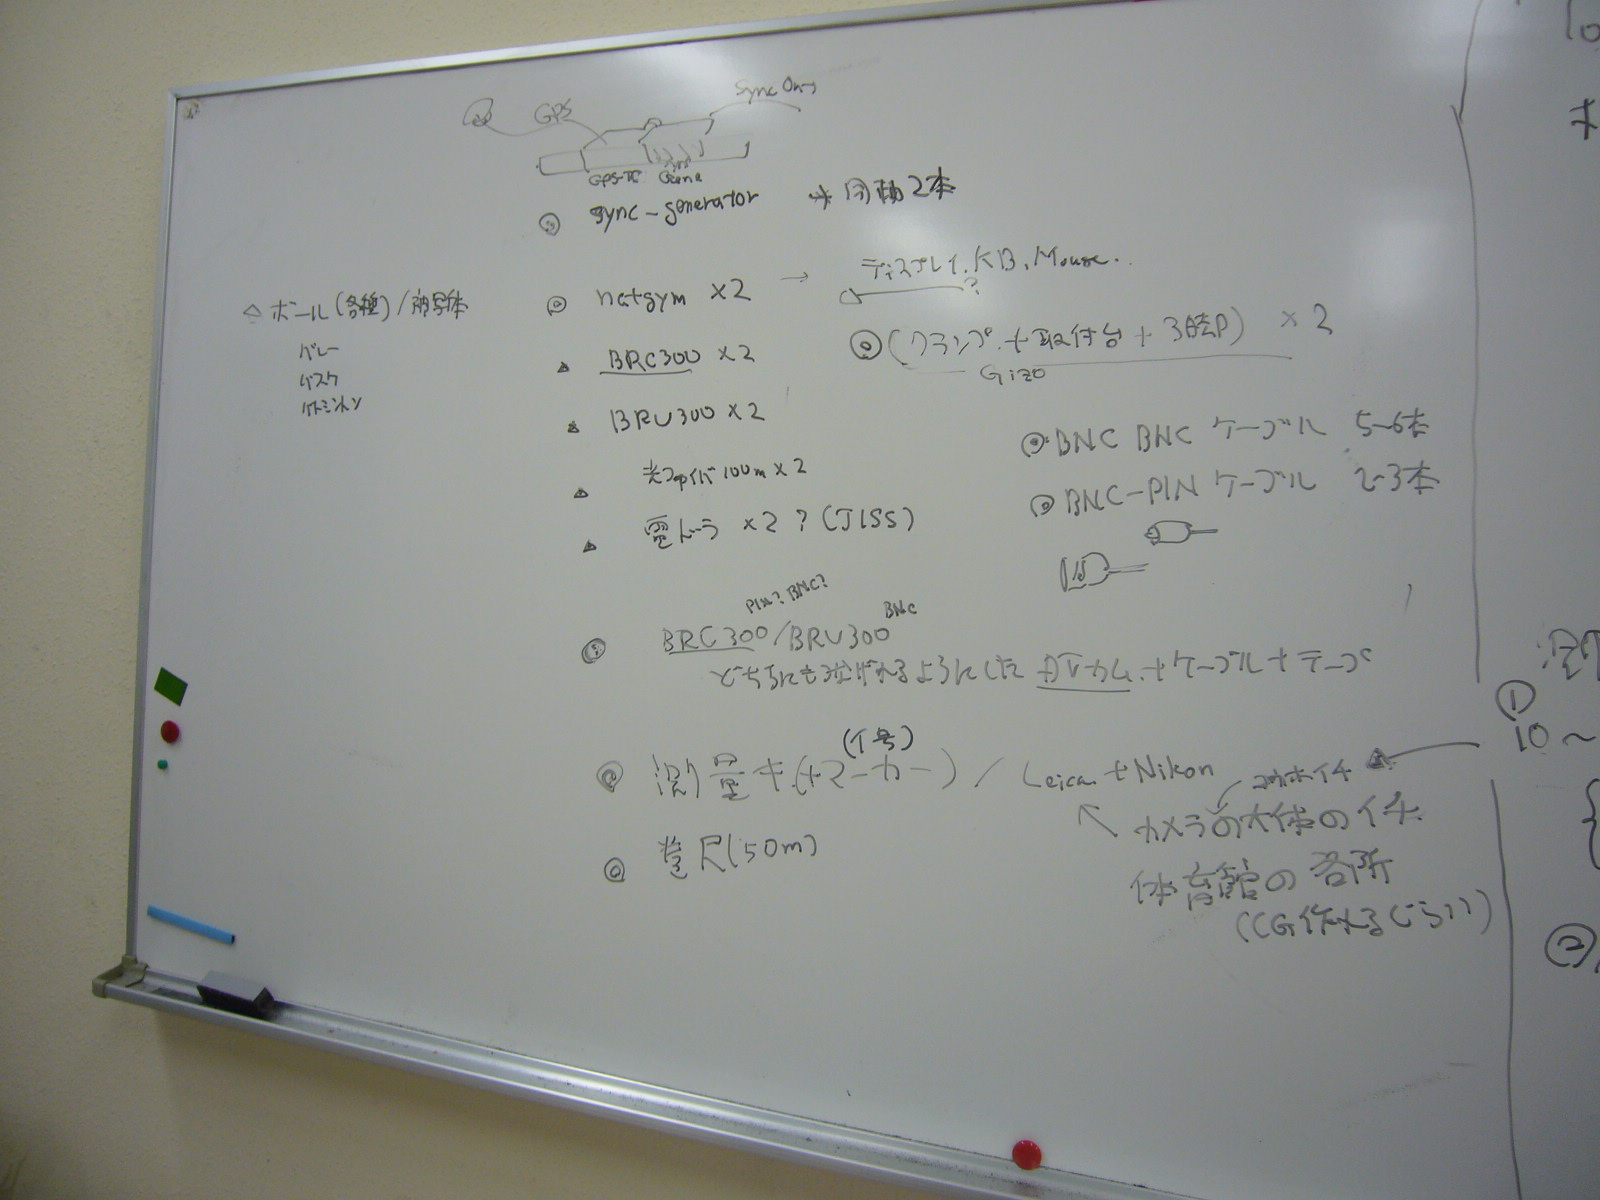 GPS
Sync Out
GPS-TC Gene
◎ sync-generator ＊同軸2本
◎ netgym ×2 → ディスプレイ, KB, Mouse..
?
△ ボール(各種)/
バレー
バスケ
バトミントン
▲ BRC300 ×2
◎(クランプ+取付台+3脚) ×2
Gizo
▲ BRU300 ×2
◎ BNC BNC ケーブル 5~6本
▲ 光ファイバ 100m ×2
◎ BNC-PIN ケーブル 2-3本
▲ 電ドラ ×2?(JISS)
PIN? BNC?
BNC
◎ BRC300/BRU300
どちらにも繋げれるようにした DVカム+ケーブル+テープ
(1号)
◎ 測量キ(+マーカー)/Leica+Nikon
カメラの大体のイチ
体育館の各所
(CG作れるぐらい)
◎ 巻尺(50m)
①
10~
②